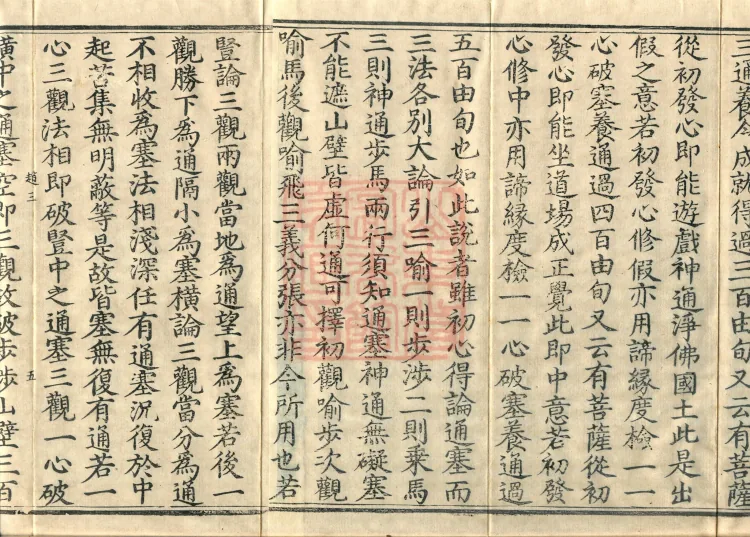 三通養令成就得過三百由旬又云有菩薩
從初發心即能遊戲神通淨佛國土此是出
假之意若初發心修假亦用諦緣度檢一一
心破塞養通過四百由旬又云有菩薩從初
發心即能坐道場成正覺此即中意若初發
心修中亦用諦緣度檢一一心破塞養通過
五百由旬也如此說者雖初心得論通塞而
三法各別大論引三喻一則步涉二則乘馬
三則神通步馬兩行須知通塞神通無礙塞
不能遮山壁皆虛何通可擇初觀喻步次觀
喻馬後觀喻飛三義分張亦非今所用也若
豎論三觀兩觀當地爲通望上爲塞若後一
觀勝下爲通隔小爲塞橫論三觀當分爲通
不相收爲塞法相淺深任有通塞況復於中
起苦集無明蔽等是故皆塞無復有通若一
心三觀法相即破豎中之通塞三觀一心破
趙三 五
橫中之通塞空即三觀故破步涉山壁三百